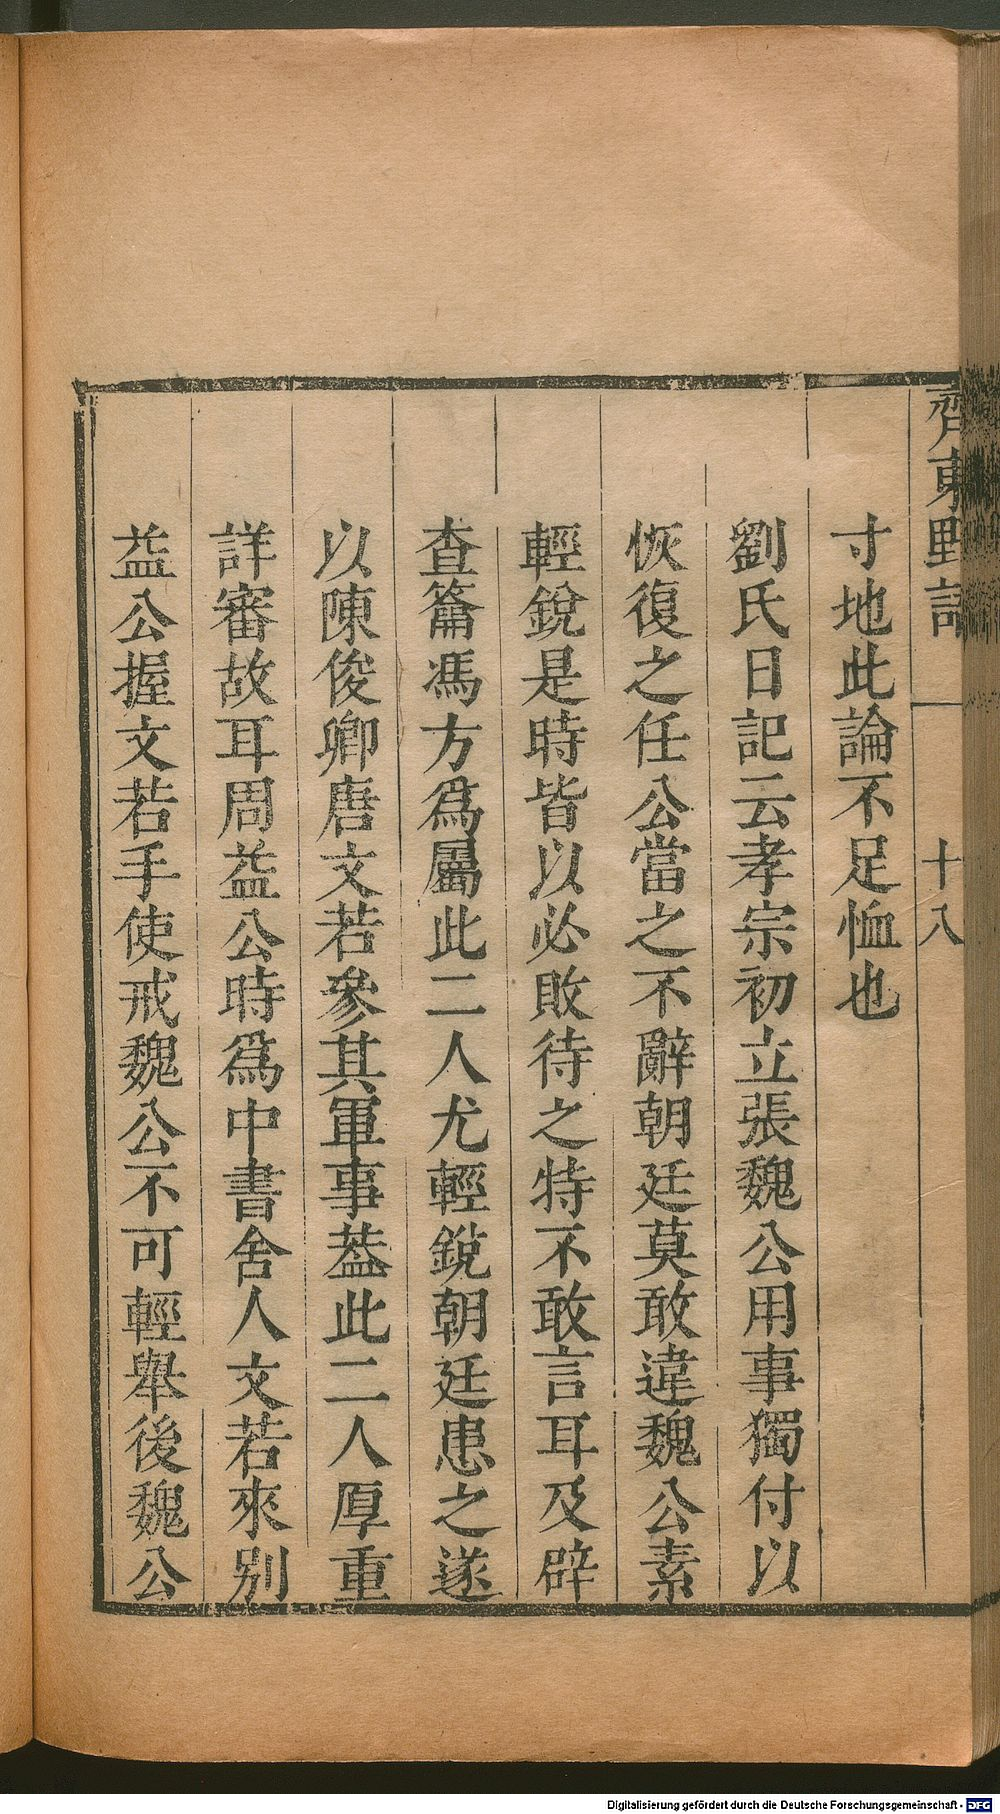 齊東野語
十八
寸地此論不足恤也
劉氏日記云孝宗初立張魏公用事獨付以
恢復之任公當之不辭朝廷莫敢違魏公素
輕銳是時皆以必敗待之特不敢言耳及辟
查籥馮方爲屬此二人尤輕銳朝廷患之遂
以陳俊卿唐文若參其軍事葢此二人厚重
詳審故耳周益公時爲中書舍人文若來別
益公握文若手使戒魏公不可輕舉後魏公
Digitalisierung gefördert durch die Deutsche Forschungsgemeinschaft - DFG